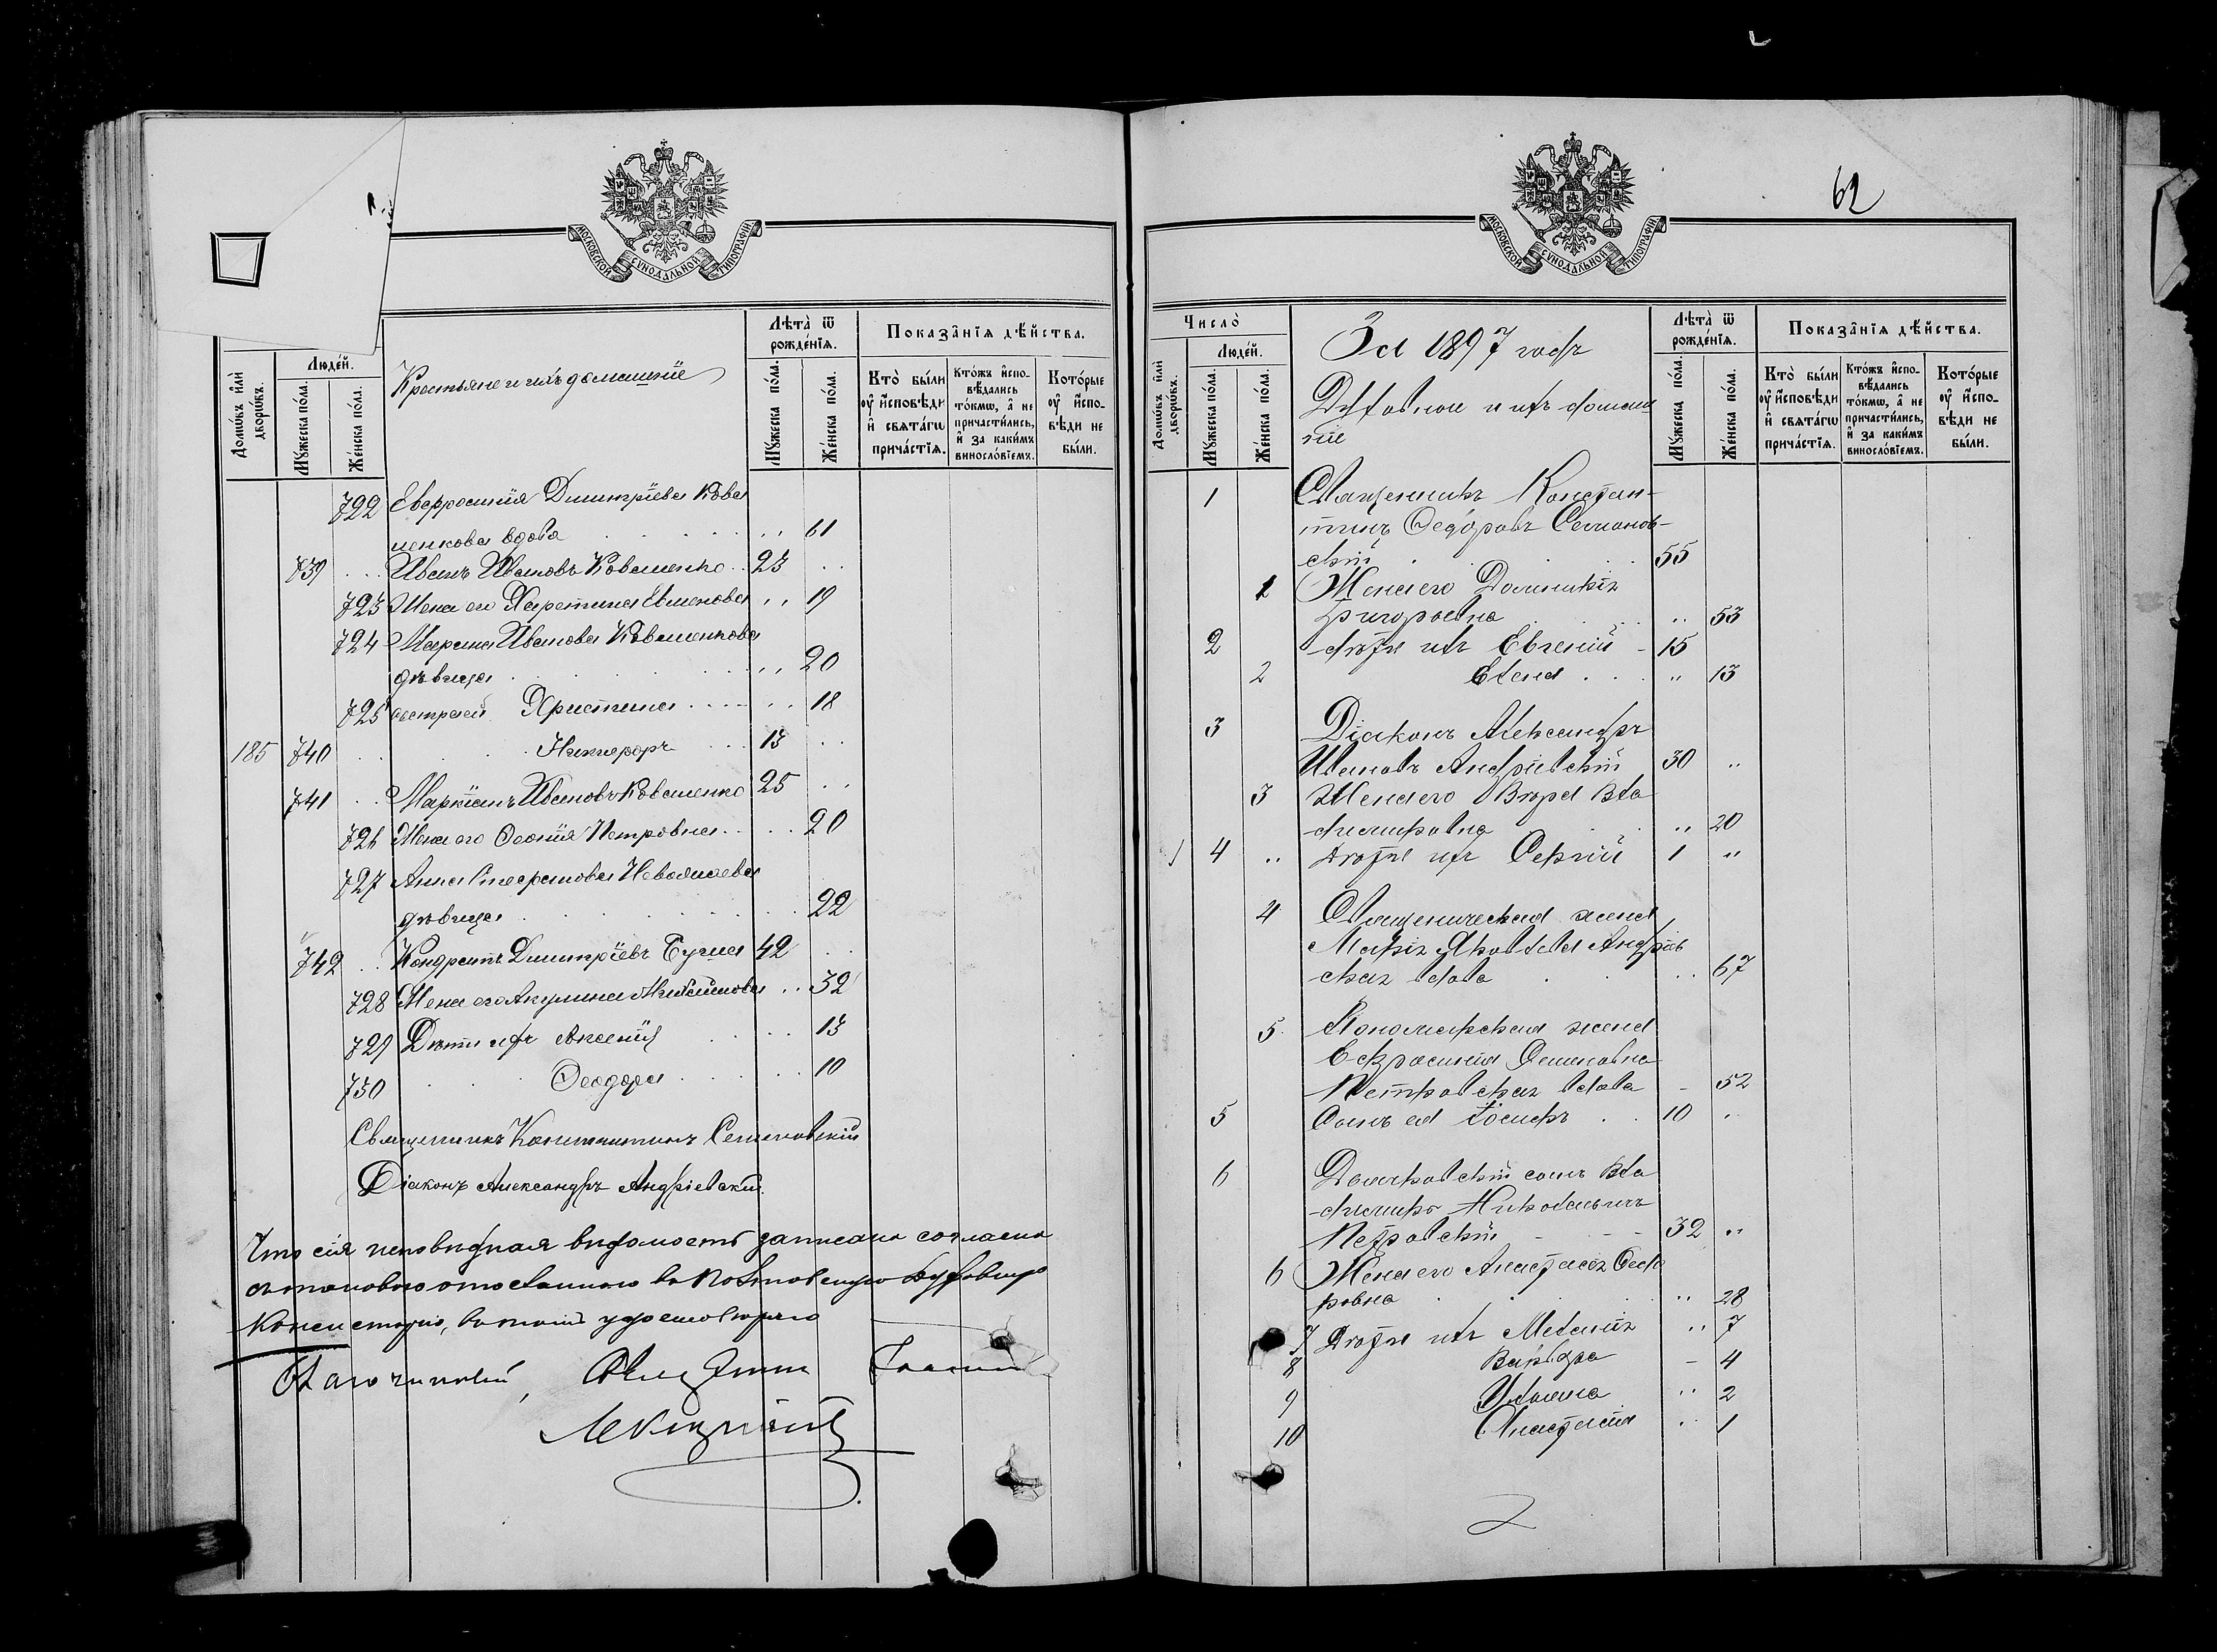 МОСКОВСКОЙ СѴНОДАЛЬНОЙ ТИПОГРАФІИ
Людей.
Домѡвъ или дворѡвъ.
Мꙋжеска пола.
Женска пола.
Крестьяне и ихъ домашніе
Лѣта ѿ рожденія.
Мꙋжеска пола.
Женска пола.
Показанія дѣйства.
Кто были ᲂу исповѣди и свѧтагѡ причастія.
Ктожъ исповѣдались токмѡ, а не причастились, и за какимъ винословіемъ.
Которые ᲂу исповѣди не были.
722 Евфросинія Димитріева Кова
ленкова вдова . . 61
739 . . Иванъ Ивановъ Коваленко . . 23 . .
723 Жена его Харитина Евменова . . 19
724 Марина Иванова Коваленкова
дѣвица . . 20
725 сестра ей Христина . . 18
185 740 Никифоръ 13 . .
741 . . Маркіанъ Ивановъ Коваленко 25 . .
726 Жена его Феонія Петровна . . 20
727 Анна
дѣвица . . 22
742 . . Кондратъ Димитріевъ Бугла 42 . .
728 Жена его Акулина . . 32
729 Дѣти ихъ Аксенія . . 13
730 Феодора . . 10
Священникъ Константинъ Семеновскій
Діаконъ Александръ Андріевскій.
Что сія исповѣдная вѣдомость записана согласно
съ таковою отосланною въ Полтавскую Духовную
Консисторію, въ томъ удостовѣряю
Благочинный, Священникъ Іоаннъ
62
МОСКОВСКОЙ СѴНОДАЛЬНОЙ ТИПОГРАФІИ
Число
Людей.
Домѡвъ или дворѡвъ.
Мꙋжеска пола.
Женска пола.
За 1897 годъ
Духовные и ихъ домаш
ніе
Лѣта ѿ рожденія.
Мꙋжеска пола.
Женска пола.
Показанія дѣйства.
Кто были ᲂу исповѣди и свѧтагѡ причастія.
Ктожъ исповѣдались токмѡ, а не причастились, и за какимъ винословіемъ.
Которые ᲂу исповѣди не были.
1 Священникъ Констан-
тинъ Феодоровъ Семенов-
скій 55
1 Жена его Домникія
Григорьевна . . 53
2 дѣти ихъ Евгеній - 15
2 Елена . . . „ 13
3 Діаконъ Александръ
Ивановъ Андріевскій 30 „
3 Жена его Вѣра Вла
димировна „ 20
4 „ Дѣти ихъ Сергій 1 „
4 Священническая жена
Марія Яковлева Андріев
ская вдова . . 67
5. Пономарская жена
Евфросинія Семеновна
Петровская вдова - 52
5 Сынъ ея Іосифъ . . 10 „
6 Дьячковскій сынъ Вла
димиръ Николаевичъ
Петровскій - - - 32 „
6 Жена его Анастасія Федо
ровна „ 28
7 Дѣти ихъ Меланія „ 7
8 Варвара - 4
9 Уліяна „ 2
10 Анастасія „ 1